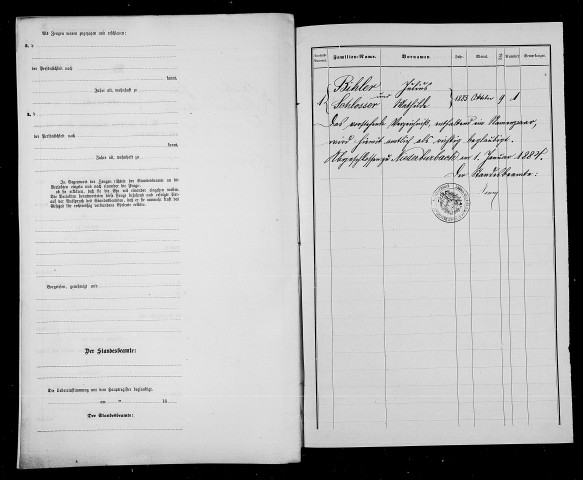 Als Zeugen waren zugezogen und erschienen:
3. d
der Persönlichkeit nach
kannt,
Jahre alt, wohnhaft zu
4. d
der Persönlichkeit nach
kannt,
Jahre alt, wohnhaft zu
In Gegenwart der Zeugen richtete der Standesbeamte an die
Verlobten einzeln und nach einander die Frage:
ob sie erklären, daß sie die Ehe mit einander eingehen wollen.
Die Verlobten beantworteten diese Frage bejahend und erfolgte hier-
auf der Ausspruch des Standesbeamten, daß er sie nunmehr kraft des
Gesetzes für rechtmäßig verbundene Eheleute erkläre.
Vorgelesen, genehmigt und
Der Standesbeamte:
Die Uebereinstimmung mit dem Hauptregister beglaubigt.
am ten 18
Der Standesbeamte:
Familien-Name. Vornamen. Jahr. Monat. Tag. Nummer. Bemerkungen.
Bihler Julius
1 und 1883 Oktober 9 1
Schlosser Mathilde
Das vorstehende Verzeichniß, enthaltend ein Namenspaar,
wird hiermit amtlich als richtig beglaubigt.
Abgeschlossen zu 1. Januar 1884.
Der Standesbeamte: